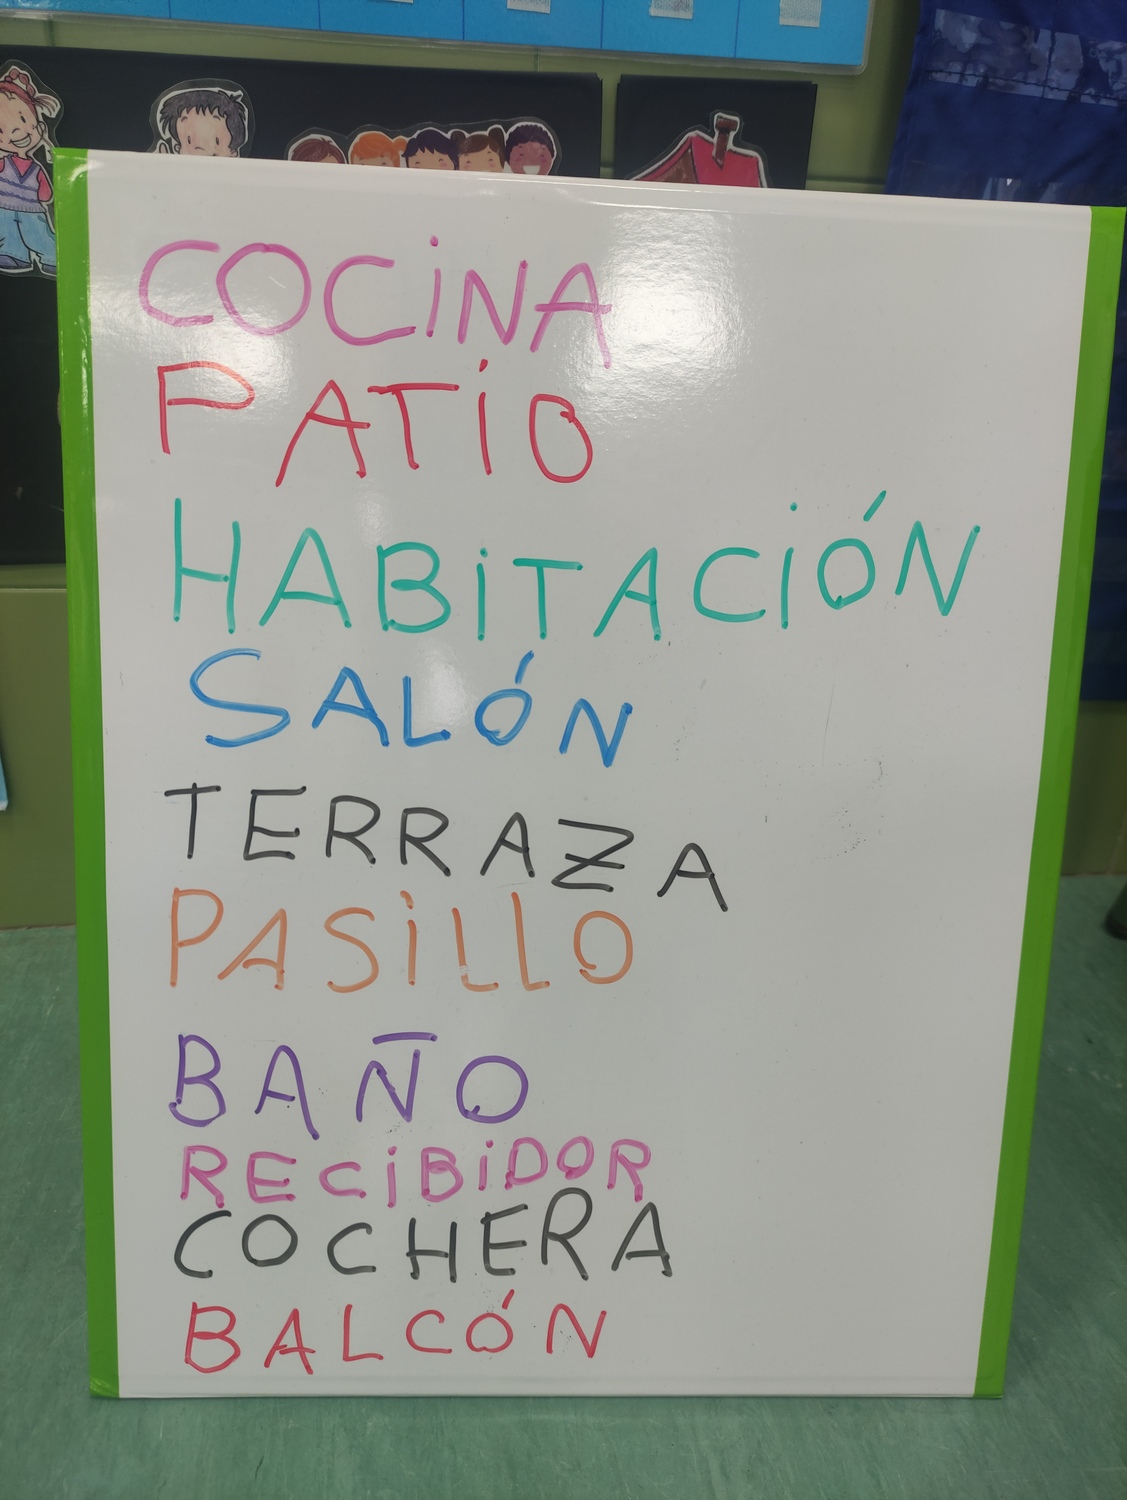 COCINA
PATIO
HABITACIÓN
SALÓN
TERRAZA
PASILLO
BAÑO
RECIBIDOR
COCHERA
BALCÓN